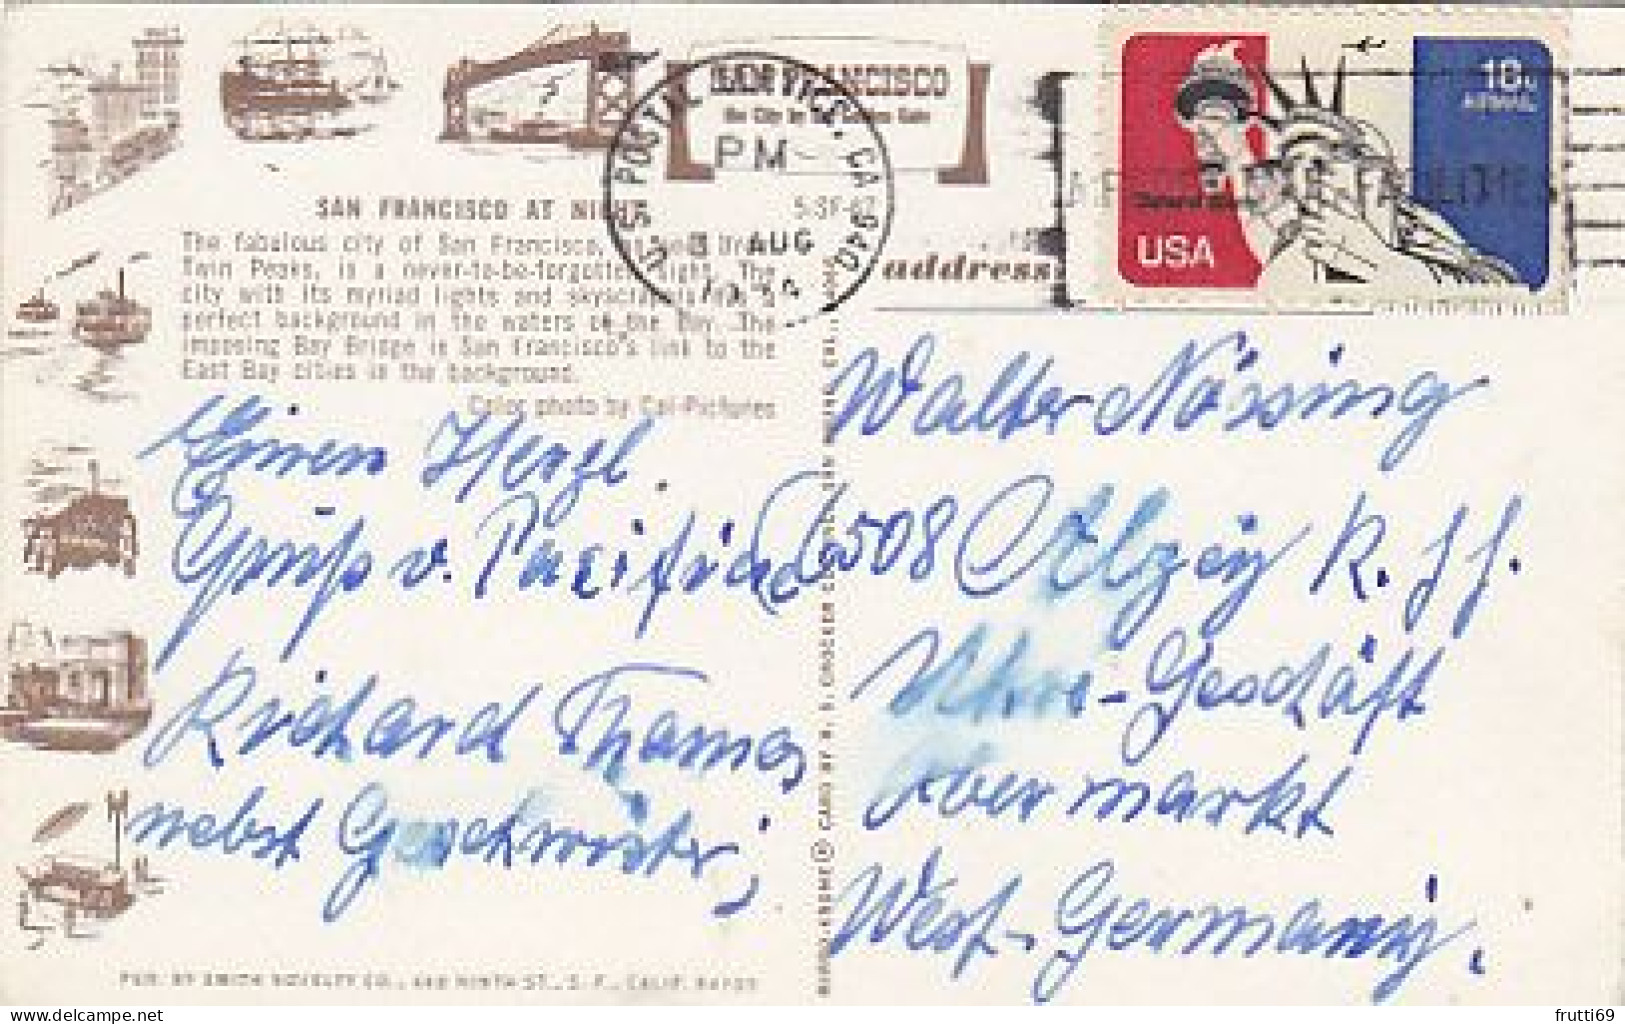 SAN FRANCISCO
the City by the Golden Gate
U.S. POSTAL SERVICE, CA 940
PM
3 AUG
18c
AIRMAIL
USA
SAN FRANCISCO AT NIGHT
5-SF-47
The fabulous city of San Francisco, as seen from
Twin Peaks, is a never-to-be-forgotten sight. The
city with its myriad lights and skyscrapers has a
perfect background in the waters of the Bay. The
imposing Bay Bridge is San Francisco's link to the
East Bay cities in the background.
Color photo by Cal-Pictures
address
Einen Herzl.
Gruß v. Pacific
Richard Thomas
nebst Geschwister,
Walter Nössing
6508 Alzey R. H.
Uhren-Geschäft
Obermarkt
West-Germany.
PUB. BY SMITH NOVELTY CO., 460 NINTH ST., S. F., CALIF. 94103
delcampe.net
frutti69